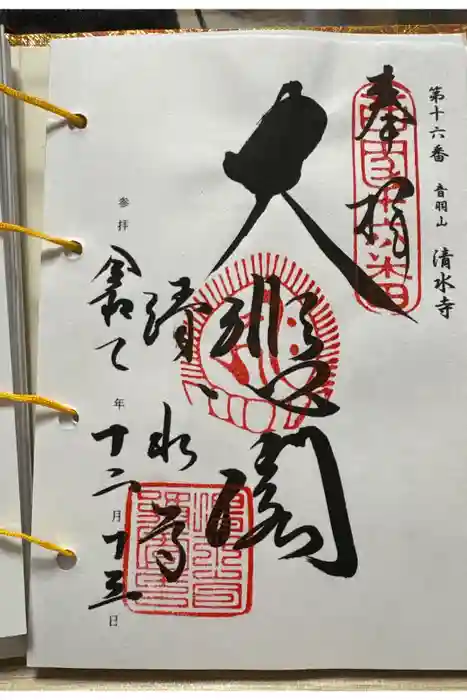 第十六番 音羽山 清水寺
奉拝
西国十六番
大悲閣
清水寺
参拝 令和七年十二月十五日